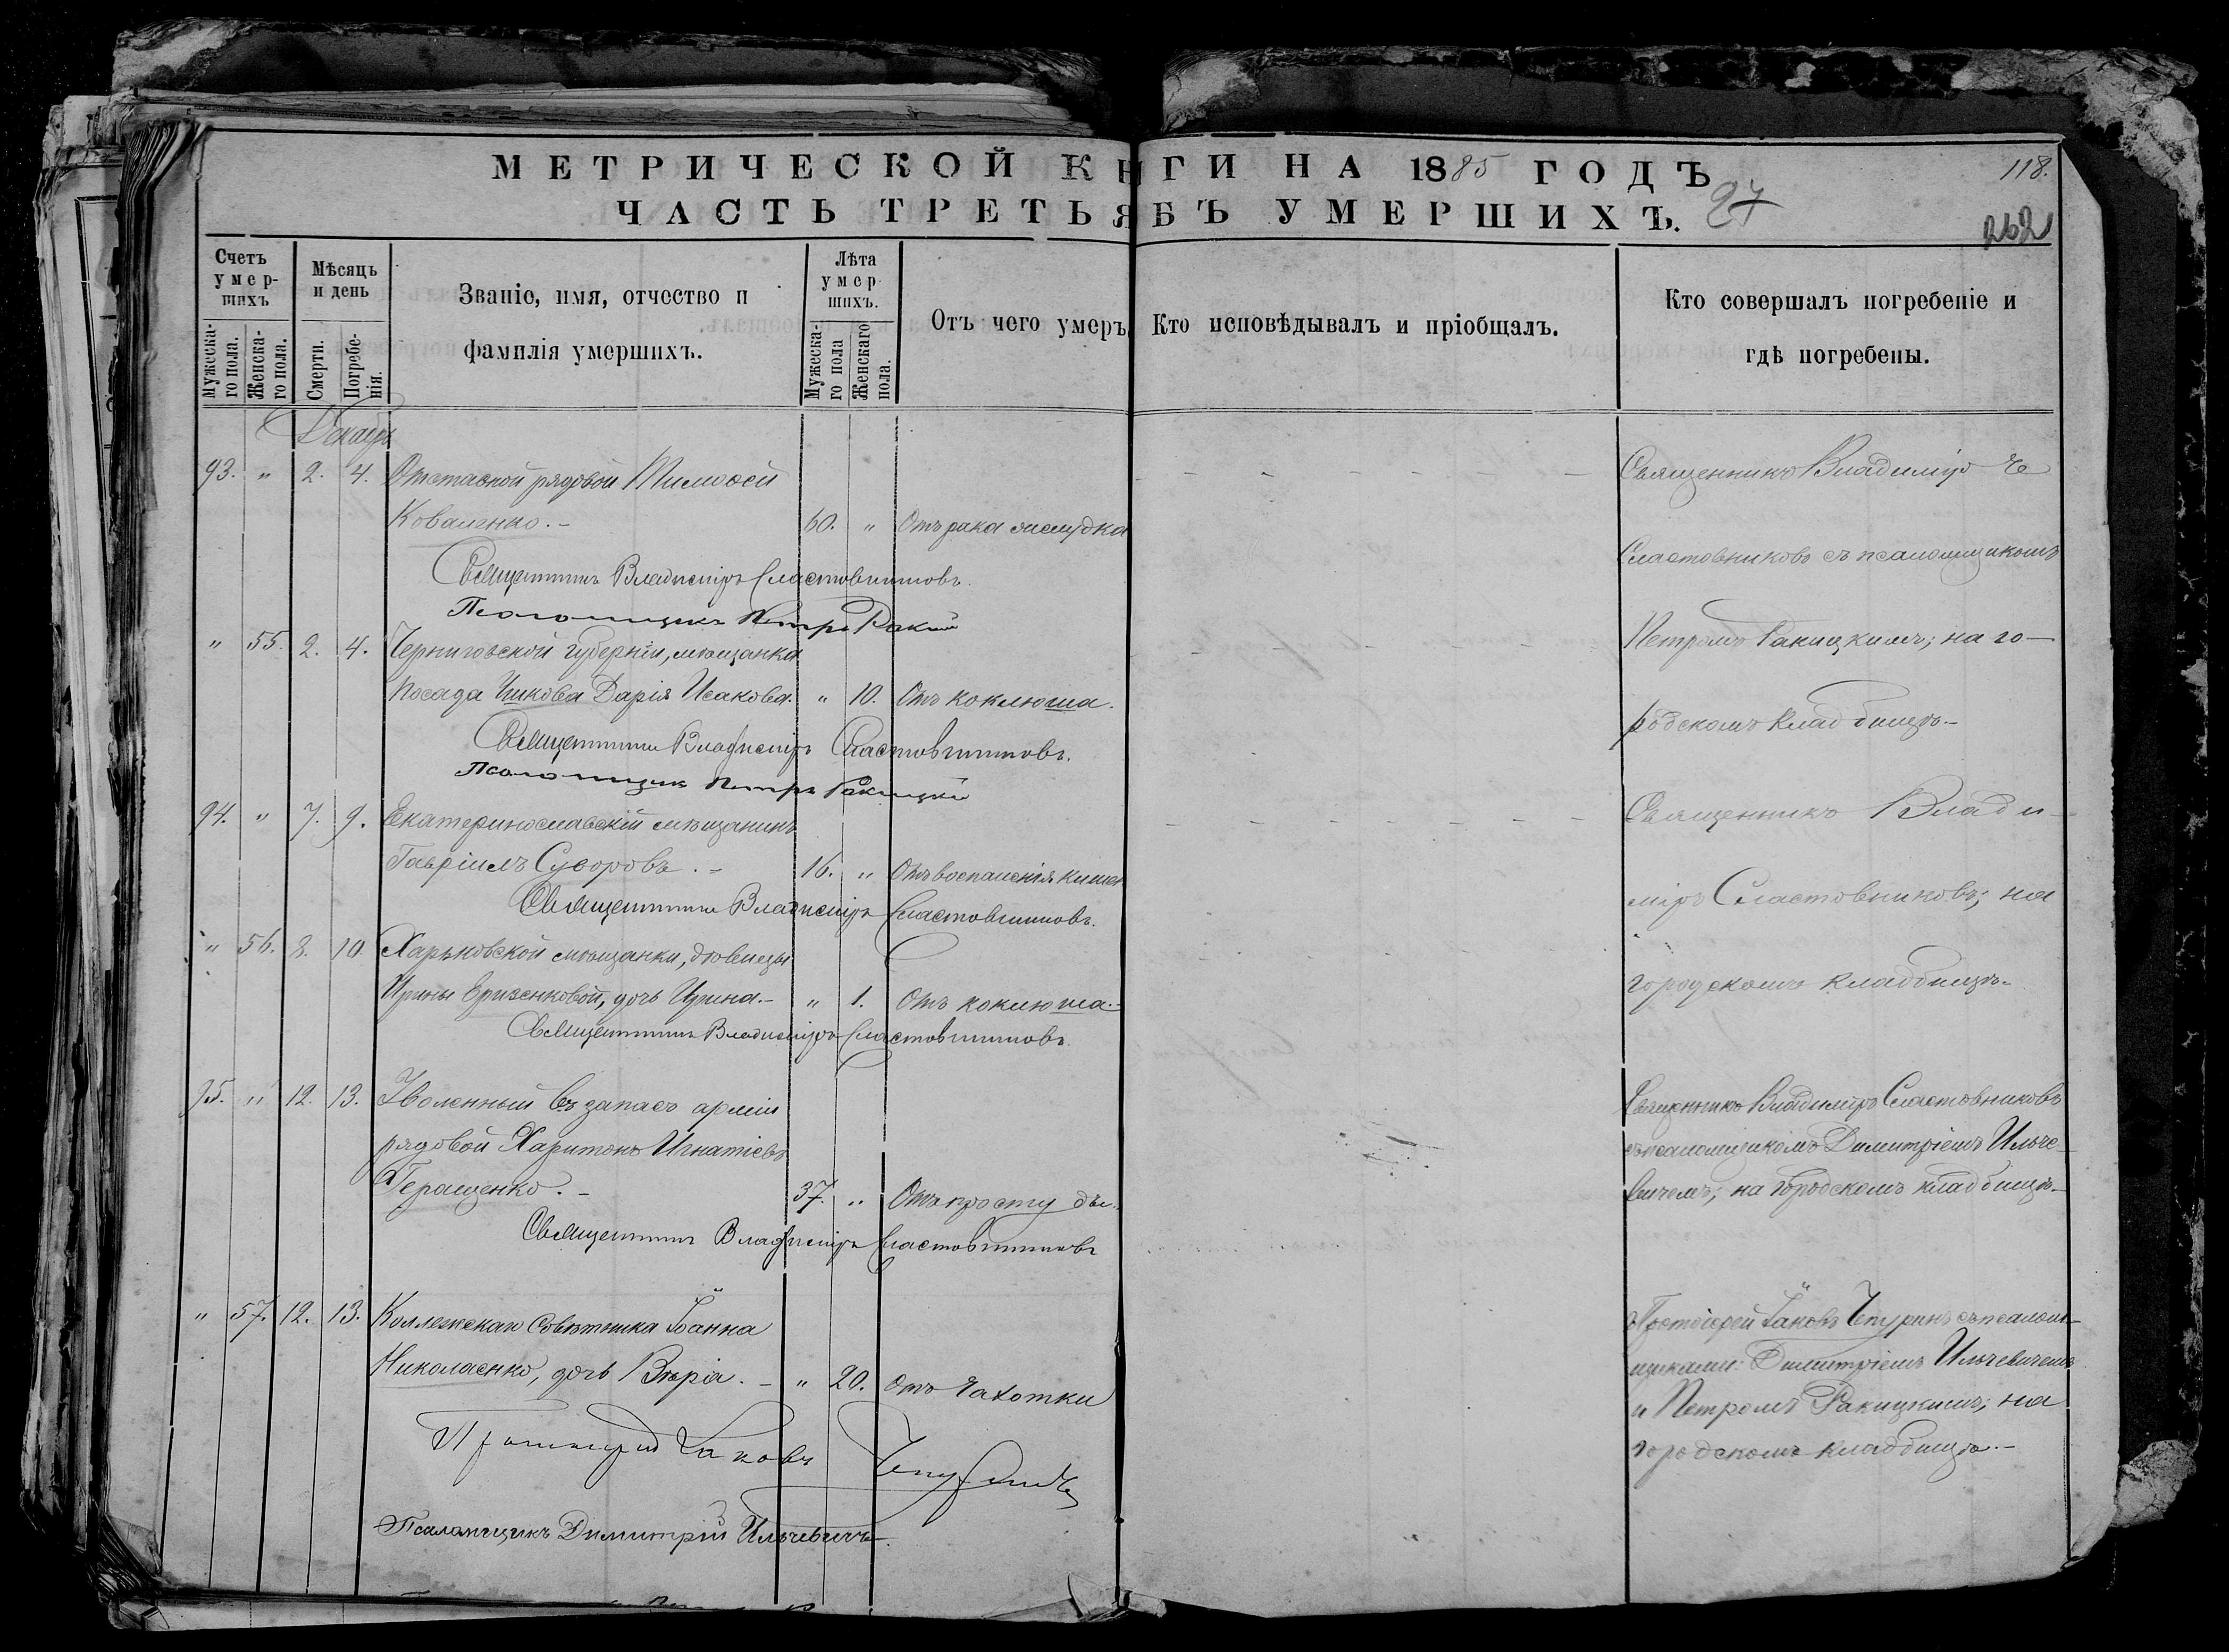 МЕТРИЧЕСКОЙ КНГИ НА 1885 ГОДЪ
118.
ЧАСТЬ ТРЕТЬЯ БЪ УМЕРШИХЪ.
27
262
Счетъ умер-шихъ
Мѣсяцъ и день
Званіе, имя, отчество и фамилія умершихъ.
Лѣта умер шихъ.
Отъ чего умеръ
Кто исповѣдывалъ и пріобщалъ.
Кто совершалъ погребеніе и гдѣ погребены.
Мужеска-го пола.
Женска-го пола.
Смерти.
Погребе-нія.
Мужеска-го пола
Женскаго пола.
Декабрь
93. " 2. 4. Отставной рядовой Тимоѳей
Коваленко.- 60. " Отъ рака желудка
Священникъ Владиміръ Сластовниковъ.
Псаломщикъ Петръ Ракиц
Священникъ Владиміръ
Сластовниковъ съ псаломщикомъ
Петромъ Ракицкимъ; на го-
родскомъ кладбищѣ.-
" 55. 2. 4. Черниговской губерніи, мѣщанка
посада Дарія Исакова. " 10. Отъ коклюша.
Священникъ Владиміръ Сластовниковъ.
Псаломщикъ Петръ Ракицкій
94. " 7. 9. Екатеринославскій мѣщанинъ
Гавріилъ Суворовъ.- 16. " Отъ воспаленія кишек
Священникъ Владиміръ Сластовниковъ.
Священникъ Влади-
міръ Сластовниковъ; на
городскомъ кладбищѣ.
" 56. 8. 10. Харьковской мѣщанки, дѣвицы
Ирины дочь Ирина.- " 1. Отъ коклюша.-
Священникъ Владиміръ Сластовниковъ.
95. " 12. 13. Уволенный въ запасъ арміи
рядовой Харитонъ Игнатіевъ
Геращенко.- 37. " Отъ простуды.
Священникъ Владиміръ Сластовниковъ
Священникъ Владиміръ Сластовниковъ
съ псаломщикомъ Димитріемъ Ильче-
вичемъ; на городскомъ кладбищѣ.-
" 57. 12. 13. Коллежскаго Совѣтника Іоанна
Николаенко, дочь Вѣра.- " 20. отъ чахотки
Протоіерей Іаковъ Чепуринъ
Псаломщикъ Димитрій Ильчевичъ.
Протоіерей Іаковъ Чепуринъ съ псалом-
щиками: Димитріемъ Ильчевичемъ
и Петромъ Ракицкимъ; на
городскомъ кладбищѣ.-